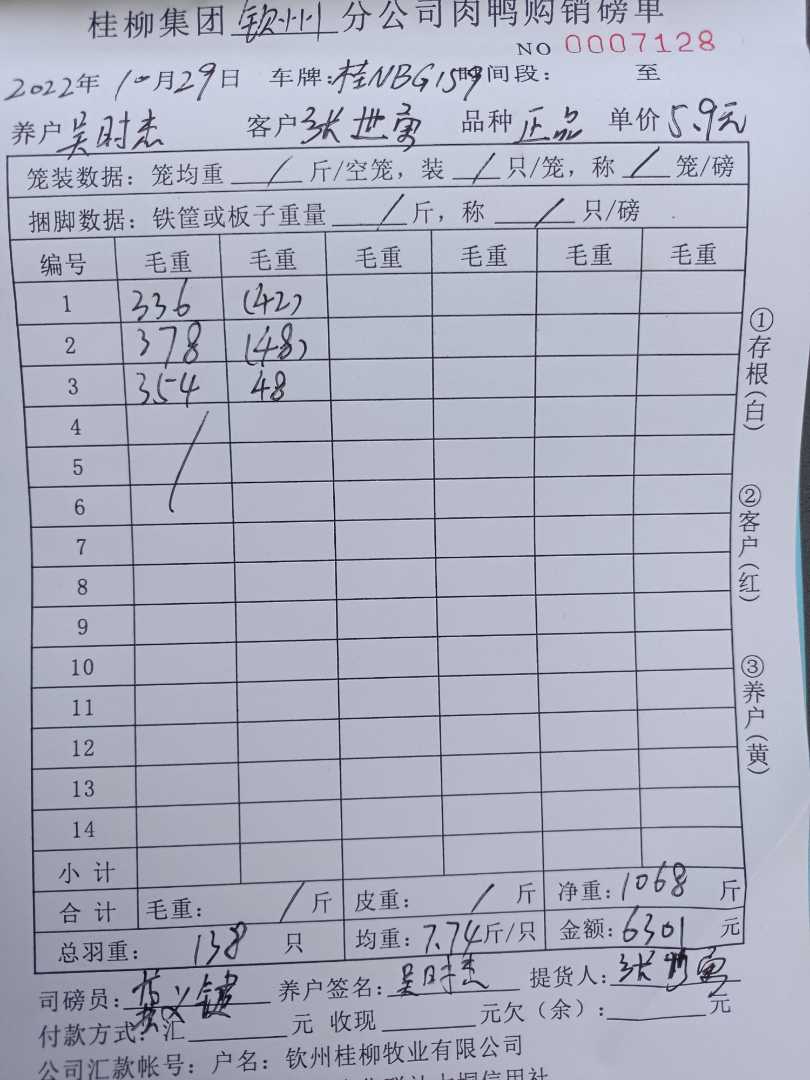 桂柳集团钦州分公司肉鸭购销磅单
NO 0007128
2022年10月29日 车牌:桂NBG159 时间段: 至
养户吴时杰 客户张世勇 品种正品 单价5.9元
笼装数据: 笼均重 / 斤/空笼, 装 / 只/笼, 称 / 笼/磅
捆脚数据: 铁筐或板子重量 / 斤, 称 / 只/磅
编号 毛重 毛重 毛重 毛重 毛重 毛重
1 336 (42)
2 378 (48)
3 354 48
4 /
5
6
7
8
9
10
11
12
13
14
小计
合计 毛重: / 斤 皮重: / 斤 净重:1068 斤
总羽重: 138 只 均重:7.74斤/只 金额:6301元
司磅员: 养户签名:吴时杰 提货人:张世勇
付款方式: 汇 元 收现 元欠(余): 元
公司汇款帐号: 户名: 钦州桂柳牧业有限公司
信用社
①存根(白)
②客户(红)
③养户(黄)